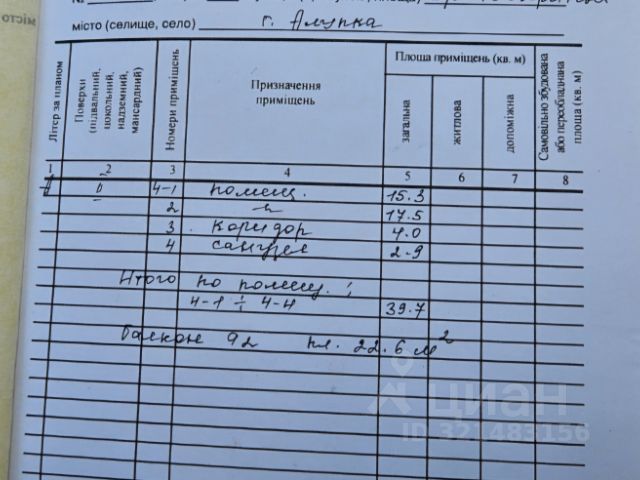 місто (селище, село) г. Алупка
Літер за планом
Поверхи (підвальний, цокольний, надземний, мансардний)
Номери приміщень
Призначення приміщень
Площа приміщень (кв. м)
загальна
житлова
допоміжна
Самовільно збудована або переобладнана площа (кв. м)
1 2 3 4 5 6 7 8
4-1 помещ. 15.3
2 -"- 17.5
3 коридор 4.0
4 санузел 2.9
Итого по помещ.:
4-1 ÷ 4-4 39.7
балкон 92 пл. 22.6 м²
циан
ID 321483156
місто